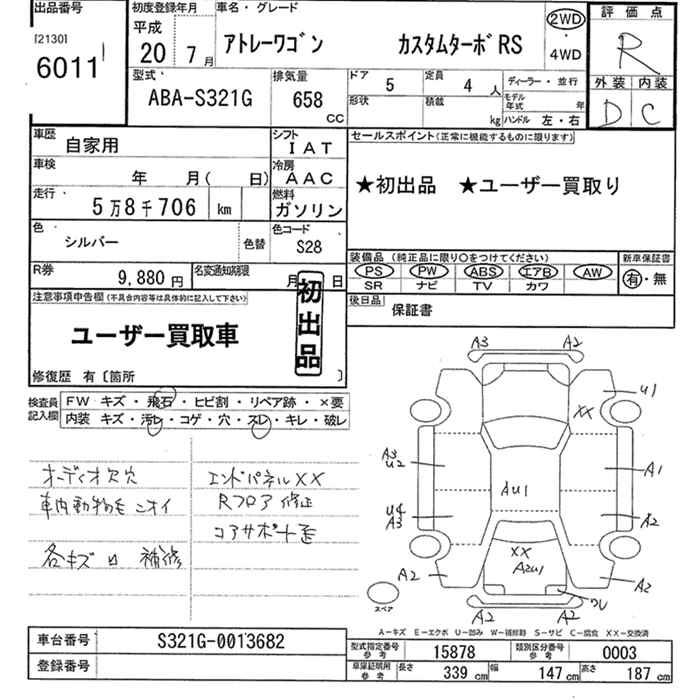 出品番号
[2130]
6011
初度登録年月
平成
20 7月
車名・グレード
アトレーワゴン カスタムターボRS
2WD
・
4WD
評価点
R
外装 内装
D C
型式
ABA-S321G
排気量
658
CC
ドア 5 定員 4 人
形状 積載 kg
ディーラー・並行
モデル年式 年
ハンドル 左・右
車歴 自家用
シフト IAT
車検 年 月( 日)
冷房 AAC
走行 5万8千706 km
燃料 ガソリン
色 シルバー 色替
色コード S28
R券 9,880円
名変通知期限 月 日
セールスポイント(正常に機能するものに限ります)
★初出品 ★ユーザー買取り
装備品 (純正品に限り○をつけてください)
PS PW ABS エアB AW
SR ナビ TV カワ
新車保証書
有・無
後日品 保証書
注意事項申告欄(不具合内容等は具体的に記入して下さい)
ユーザー買取車
初出品
修復歴 有〔箇所 〕
検査員記入欄
FW キズ・飛石・ヒビ割・リペア跡・×要
内装 キズ・汚レ・コゲ・穴・スレ・キレ・破レ
オーディオ欠穴
車内動物毛ニオイ
各キズ凹 補修
エンドパネルXX
Rフロア修正
コアサポート歪
A3 A2
U1
XX
A3
U2
A1
AU1
U4
A3
A2
XX
A2U1
A2 A2
ワレ
A2 A2
スペア
A－キズ E－エクボ U－凹み W－補修跡 S－サビ C－腐食 XX－交換済
車台番号 S321G-0013682
登録番号
型式指定番号 参考 15878
類別区分番号 参考 0003
車庫証明用 参考 長さ 339 cm 幅 147 cm 高さ 187 cm